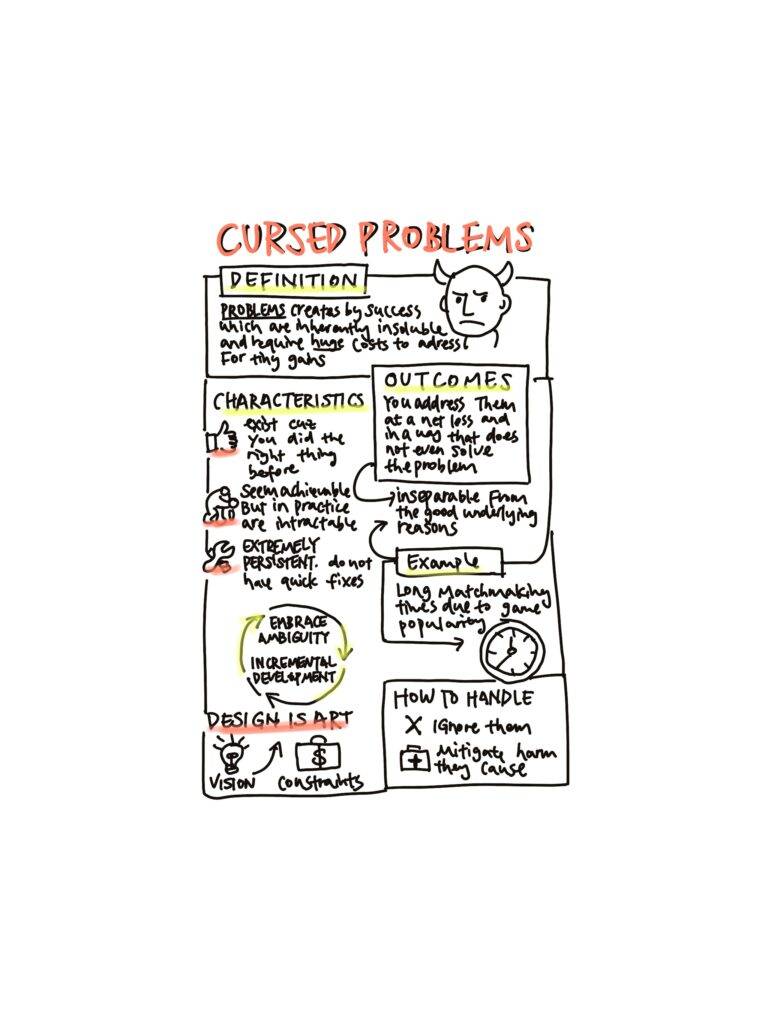 CURSED PROBLEMS
DEFINITION
PROBLEMS creates by success
which are inherently insoluble
and require huge costs to adress
For tiny gains
CHARACTERISTICS
exist cuz
You did the
right thing
before
Seem achievable
But in practice
are intractable
EXTREMELY
PERSISTENT. do not
have quick fixes
EMBRACE
AMBIGUITY
INCREMENTAL
DEVELOPMENT
DESIGN IS ART
VISION
constraints
$
OUTCOMES
You address Them
at a net loss and
in a way that does
not even solve
the problem
inseparable From
the good underlying
reasons
Example
Long Matchmaking
times due to game
popularity
HOW TO HANDLE
X Ignore them
Mitigate harm
they cause